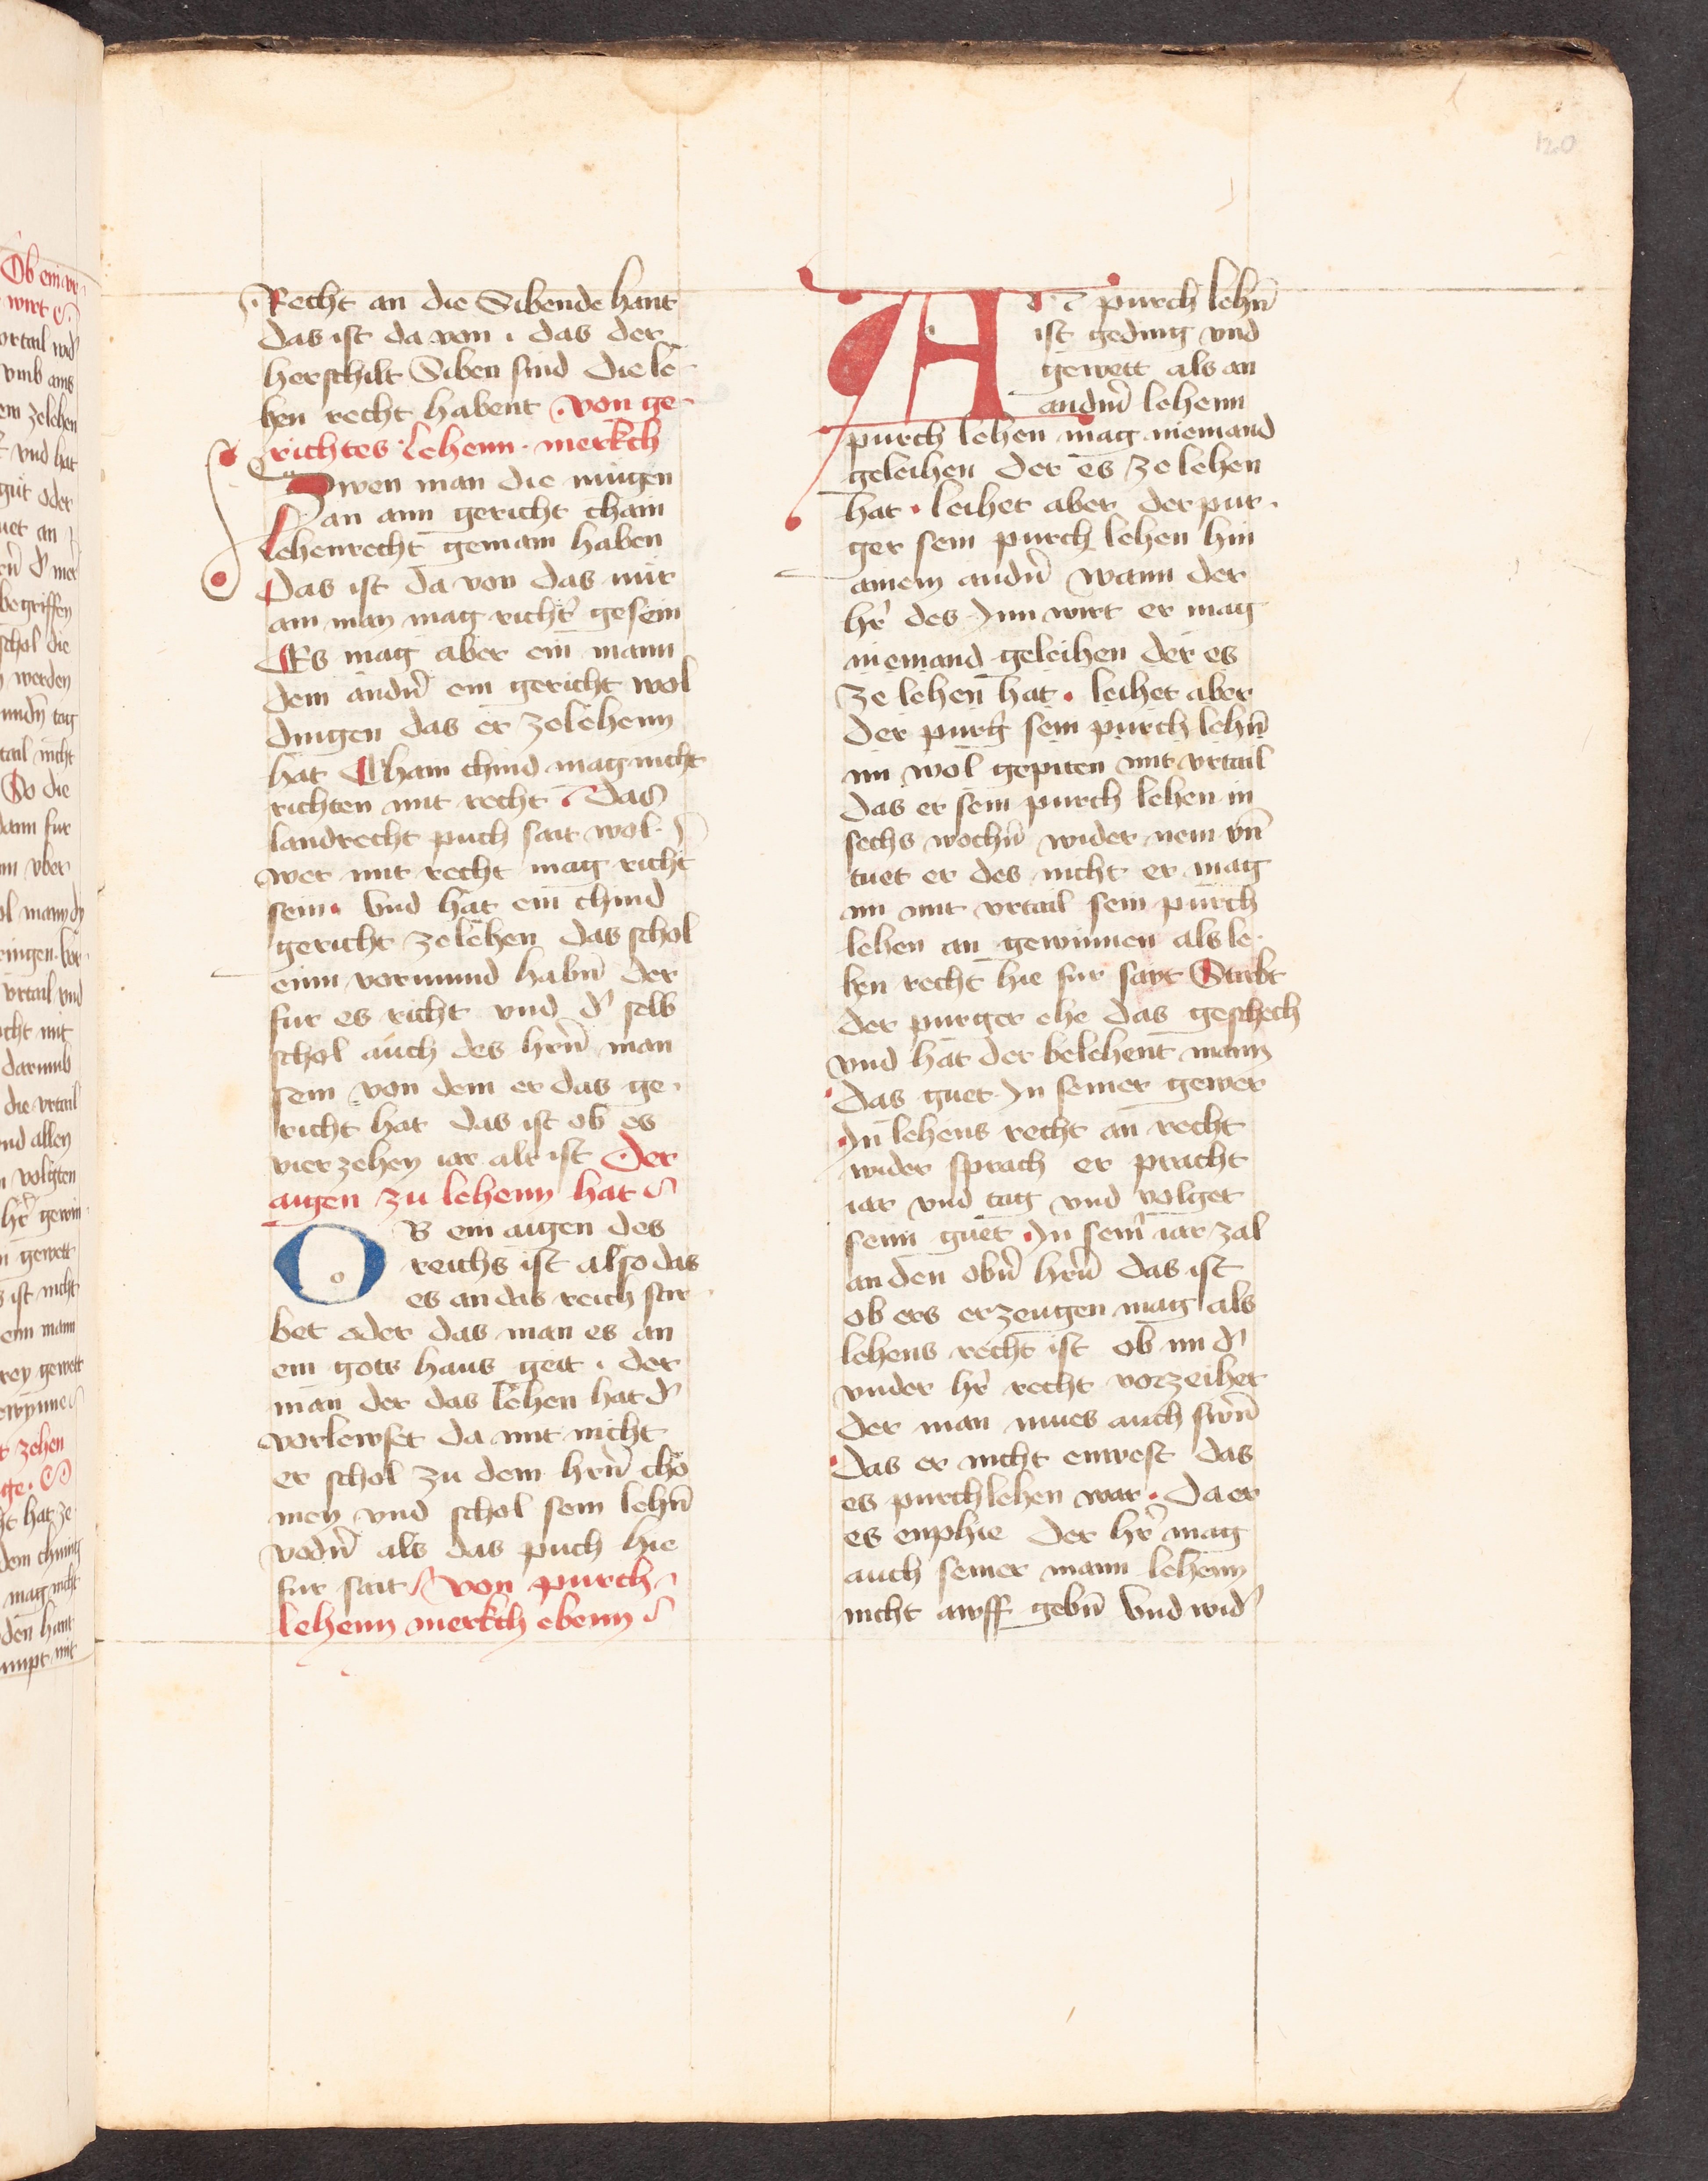 120
Recht an die Sibende hant
das ist da von · das der
herschilt Siben sind die le¬
hen recht habent von ge¬
richtes lehenn · merkch
Zwen man die mugen
an ainn gericht chain
lehenrecht gemain haben
Das ist da von das nür
ain man mag richt̉ gesein
Es mag aber ein mann
dem andn̄ ein gericht wol
dingen das er zelehenn
hat Chain chind mag nicht
richten mit recht Das
landrecht puch sait wol
wer mit recht mag richt̉
sein· Vnd hat ein chind
gericht zelehen das schol
einn vormund habn̄ der
fur es richt vnd d̉ selb
schol auch des hrn̄ man
sein von dem er das ge¬
richt hat das ist ob es
vierzehen iar alt ist Der
aigen zu lehenn hat
OB ein aigen des
reichs ist also das
es an das reich stir¬
bet oder das man es an
ein gots haus geit · der
man der das lehen hat d̉
vorlewset da mit nicht
er schol zu dem hrn̄ cho
men vnd schol sein lehn̄
vodn̄ als das puch hie
fur sait Von purch
lehenn merkch ebenn
An purch lehn̄
ist geding vnd
gewett als an
andn̄ lehenn
purch lehen mag niemand
geleihen der es ze lehen
hat · leihet aber der pur¬
ger sein purch lehen hin
ainem andn̄ wann der
hr̉ des Inn wirt er mag
niemand geleihen der es
ze lehen hat · leihet aber
der purg̉ sein purch lehn̄
im wol gepiten mit vrtail
das er sein purch lehen in
sechs wochn̄ wider nem vn̄
tuet er des nicht er mag
im mit vrtail sein purch
lehen an gewinnen als le¬
hen recht hie fur sait Stirbt
der purger ehe das geschech
vnd hat der belehent mann
das guet In seiner gewer
In lehens recht an recht
wider sprach er pracht
iar vnd tag vnd volget
seim guet In sein̉ iar zal
an den obn̄ hrn̄ das ist
ob ers erzeugen mag als
lehens recht ist ob im d̉
vnder hr̉ recht vorzeihet
der man mues auch swn̄
das er nicht enwest das
es purchlehen war · Da er
es enphie der hr̉ mag
auch seiner mann lehenn
nicht awff gebn̄ Vnd wid̉